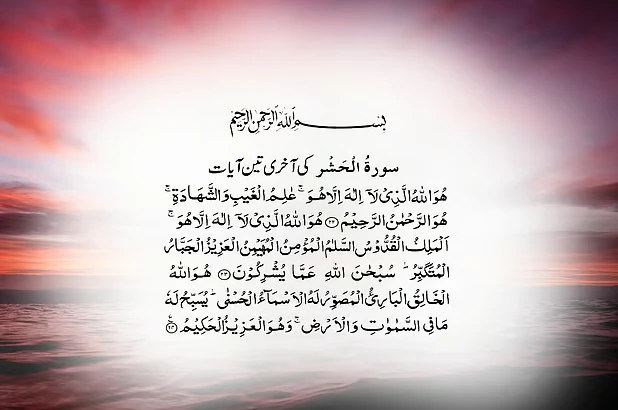 بِسْمِ اللّٰهِ الرَّحْمٰنِ الرَّحِيْمِ
سورةُ الْحَشْر کی آخری تین آیات
هُوَ اللّٰهُ الَّذِیْ لَاۤ اِلٰهَ اِلَّا هُوَ ۚ عٰلِمُ الْغَیْبِ وَ الشَّهَادَةِ ۚ
هُوَ الرَّحْمٰنُ الرَّحِیْمُ ﴿۲۲﴾ هُوَ اللّٰهُ الَّذِیْ لَاۤ اِلٰهَ اِلَّا هُوَ ۚ
اَلْمَلِكُ الْقُدُّوْسُ السَّلٰمُ الْمُؤْمِنُ الْمُهَیْمِنُ الْعَزِیْزُ الْجَبَّارُ
الْمُتَكَبِّرُ ؕ سُبْحٰنَ اللّٰهِ عَمَّا یُشْرِكُوْنَ ﴿۲۳﴾ هُوَ اللّٰهُ
الْخَالِقُ الْبَارِئُ الْمُصَوِّرُ لَهُ الْاَسْمَآءُ الْحُسْنٰی ؕ یُسَبِّحُ لَهٗ
مَا فِی السَّمٰوٰتِ وَ الْاَرْضِ ۚ وَ هُوَ الْعَزِیْزُ الْحَكِیْمُ ﴿۲۴﴾